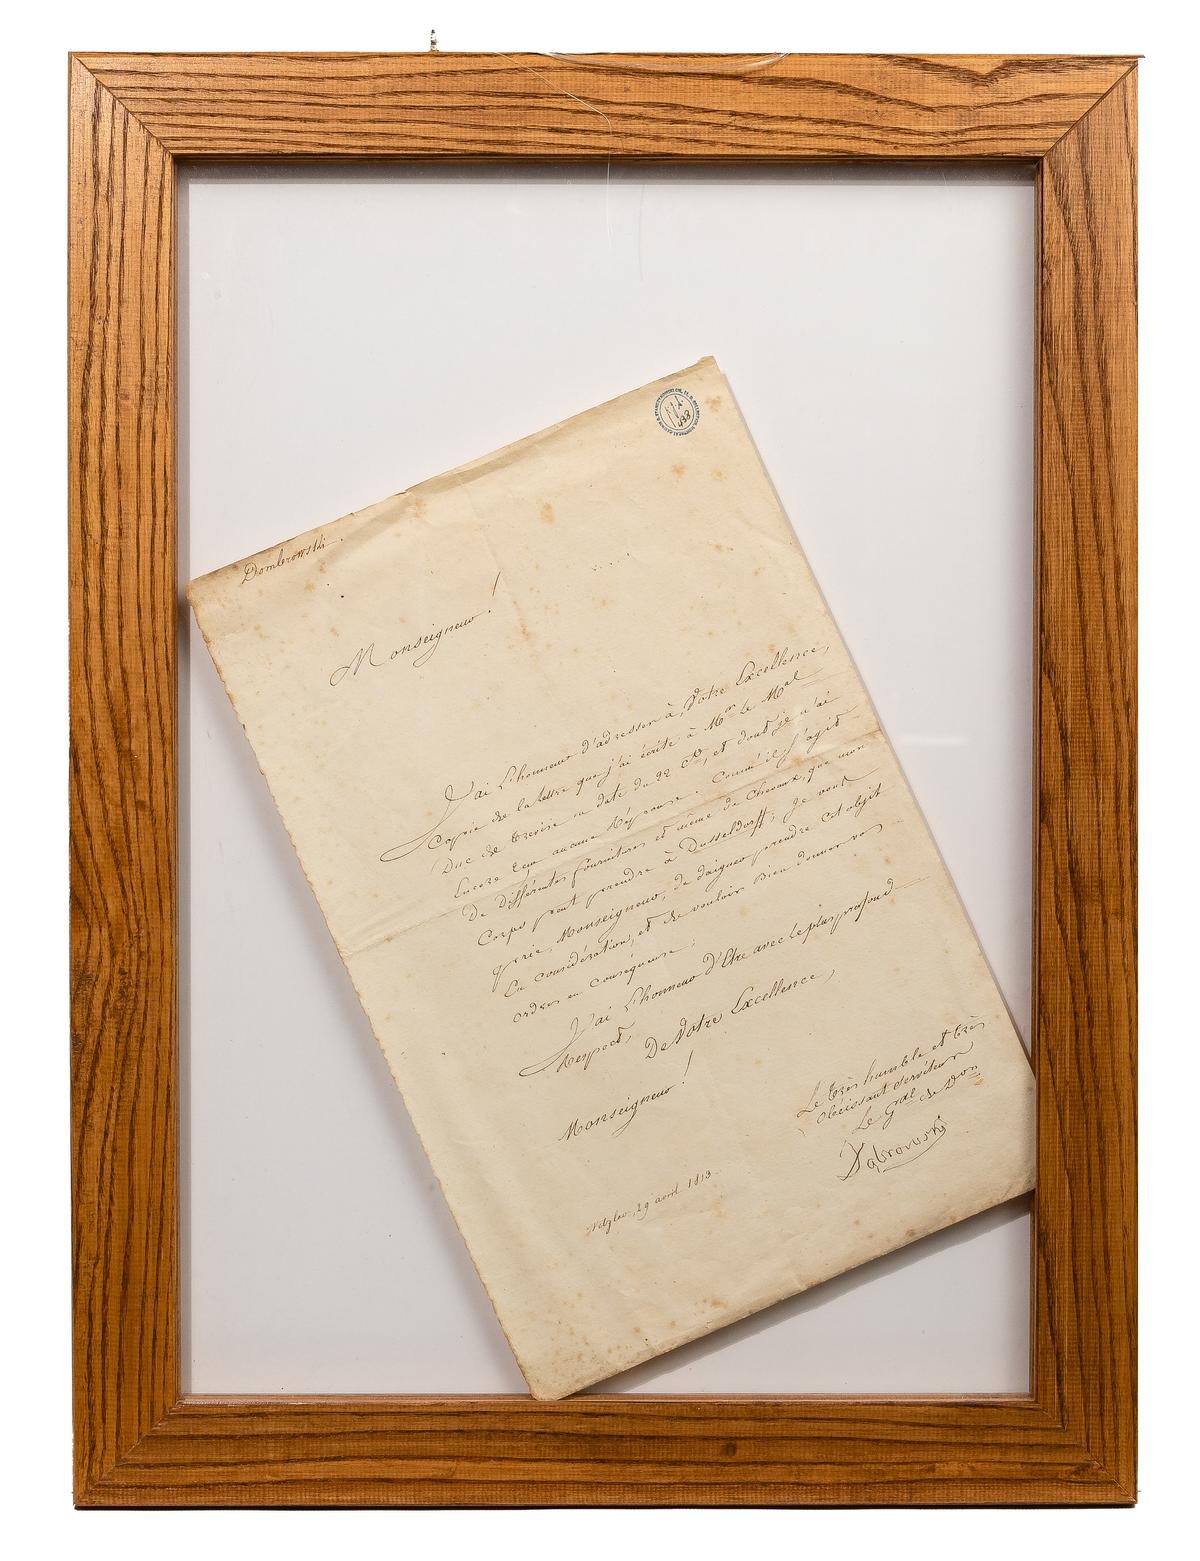 Dombrowski.
Nº 433
Monseigneur!
J'ai l'honneur d'adresser à Votre Excellence,
Copie de la lettre que j'ai écrite à Mr le Mal
Duc de Trevise en date du 22 Ct, et dont je n'ai
Encore reçu aucune Réponse. Comm'il s'agit
De différentes fournitures et même de Chevaux, que mon
Corps peut prendre à Dusseldorff, Je vous
prie, Monseigneur, de daigner prendre cet objet
En considération, et de vouloir bien donner vos
ordres en conséquence.
J'ai l'honneur d'être avec le plus profond
Respect,
De Votre Excellence,
Monseigneur!
Le très humble et très
obéissant serviteur
Le Gral de Don
Dąbrowski
29 avril 1813